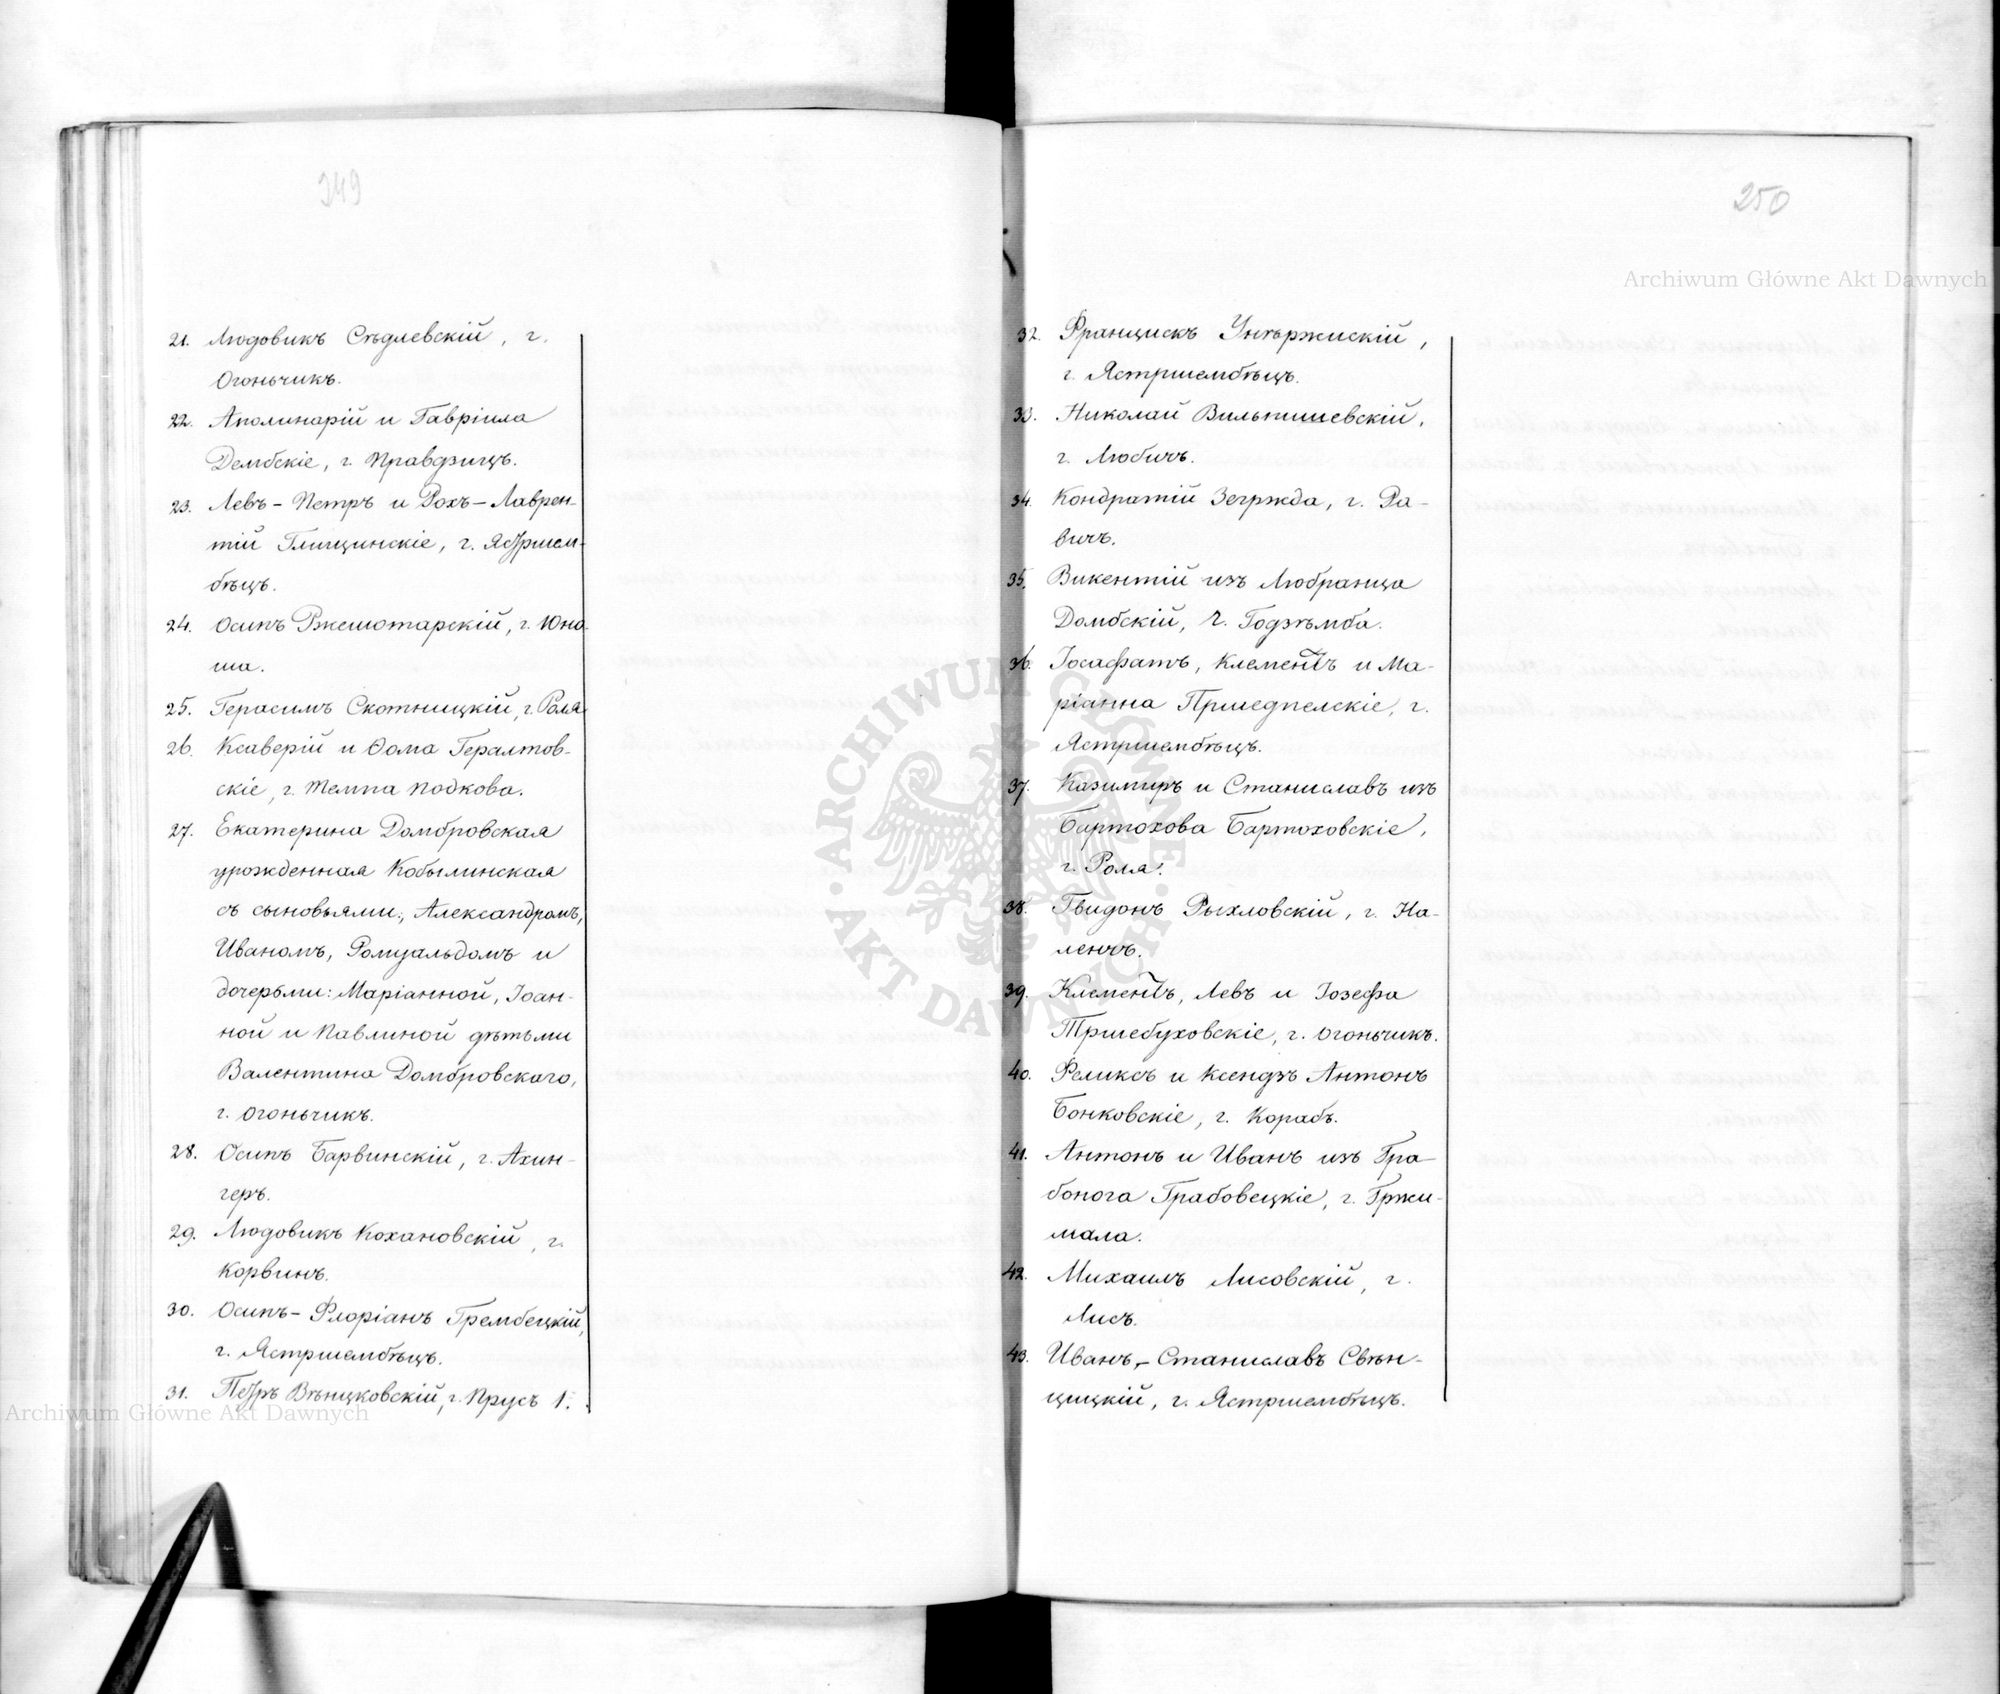 349
21. Людовикъ Сѣдлевскій, г.
Огончикъ.
22. Аполинарій и Гавріила
Дембскіе, г. Правдзицъ.
23. Левъ-Петръ и Рохъ-Лаврен-
тій Глищинскіе, г. Ястршем-
бѣцъ.
24. Осипъ Ржешотарскій, г. Юно-
ша.
25. Герасимъ Скотницкій, г. Роля
26. Ксаверій и Ѳома Гералтов-
скіе, г. Темпа подкова.
27. Екатерина Домбровская
урожденная Кобылинская
съ сыновьями, Александромъ,
Иваномъ, Ромуальдомъ и
дочерьми: Маріанной, Іоан-
ной и Павлиной дѣтьми
Валентина Домбровскаго,
г. Огоньчикъ.
28. Осипъ Барвинскій, г. Ахин-
геръ.
29. Людовикъ Кохановскій, г.
Корвинъ.
30. Осипъ-Флоріанъ Грембецкій,
г. Ястршембѣцъ.
31. Петръ Вѣнцковскій, г. Прусъ 1.
250
32. Францискъ Унѣржискій,
г. Ястршембѣцъ.
33. Николай Вильпишевскій,
г. Любичъ.
34. Кондратій Зегржда, г. Ра-
вичъ.
35. Викентій изъ Любранца
Домбскій, г. Годзѣмба.
36. Іосафатъ, Клементъ и Ма-
ріанна Пршедпелскіе, г.
Ястршембѣцъ.
37. Казимиръ и Станиславъ изъ
Бартохова Бартоховскіе,
г. Роля.
38. Гвидонъ Рыхловскій, г. На-
ленчъ.
39. Клементъ, Левъ и Іозефа
Тршебуховскіе, г. Огоньчикъ.
40. Феликсъ и Ксендзъ Антонъ
Бонковскіе, г. Корабъ.
41. Антонъ и Иванъ изъ Гра-
бонога Грабовецкіе, г. Гржи-
мала.
42. Михаилъ Лисовскій, г.
Лисъ.
43. Иванъ-Станиславъ Свѣн-
цицкій, г. Ястршембѣцъ.
Archiwum Główne Akt Dawnych
ARCHIWUM GŁÓWNE · AKT DAWNYCH ·
Archiwum Główne Akt Dawnych